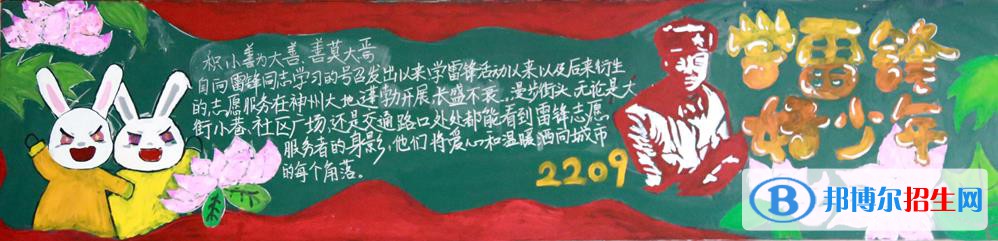 积小善为大善,善莫大焉
自向雷锋同志学习的号召发出以来,学雷锋活动以来以及后来衍生
的志愿服务在神州大地蓬勃开展,长盛不衰。漫步街头,无论是大
街小巷、社区广场,还是交通路口处处都能看到雷锋志愿
服务者的身影,他们将爱心和温暖洒向城市
的每个角落。
2209
学雷锋
好少年
B
邦博尔招生网